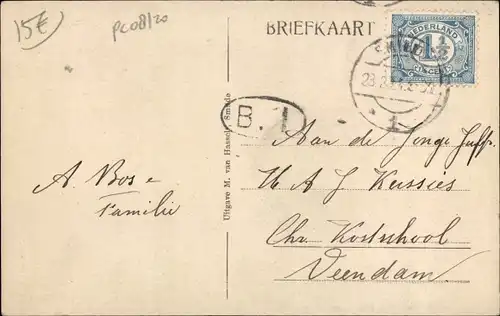 15€
PC08/20
BRIEFKAART
NEDERLAND
1½
CENT
1
B. 1
Uitgave M. van Hasselt, Smilde
A. Bos e
Familie
Aan de Jonge Juff.
H A J Kussies
Chr. Kostschool
Veendam